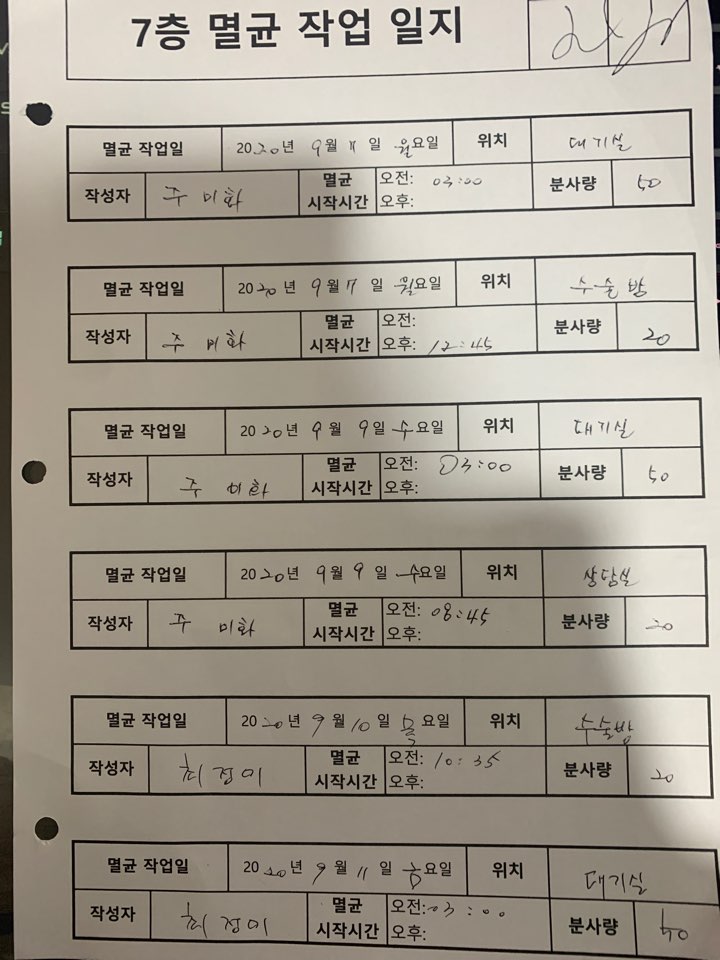 7층 멸균 작업 일지
멸균 작업일 2020년 9월 일 월요일 위치 대기실
작성자 주미화 멸균 시작시간 오전: 03:00 분사량 50
오후:
멸균 작업일 2020년 9월 7일 월요일 위치 수술방
작성자 주미화 멸균 시작시간 오전: 분사량 20
오후: 12:45
멸균 작업일 2020년 9월 9일 수요일 위치 대기실
작성자 주미화 멸균 시작시간 오전: 03:00 분사량 50
오후:
멸균 작업일 2020년 9월 9일 수요일 위치 상담실
작성자 주미화 멸균 시작시간 오전: 08:45 분사량 20
오후:
멸균 작업일 2020년 9월 10일 목요일 위치 수술방
작성자 최정미 멸균 시작시간 오전: 10:35 분사량 20
오후:
멸균 작업일 2020년 9월 11일 금요일 위치 대기실
작성자 최정미 멸균 시작시간 오전: 03:00 분사량
오후: